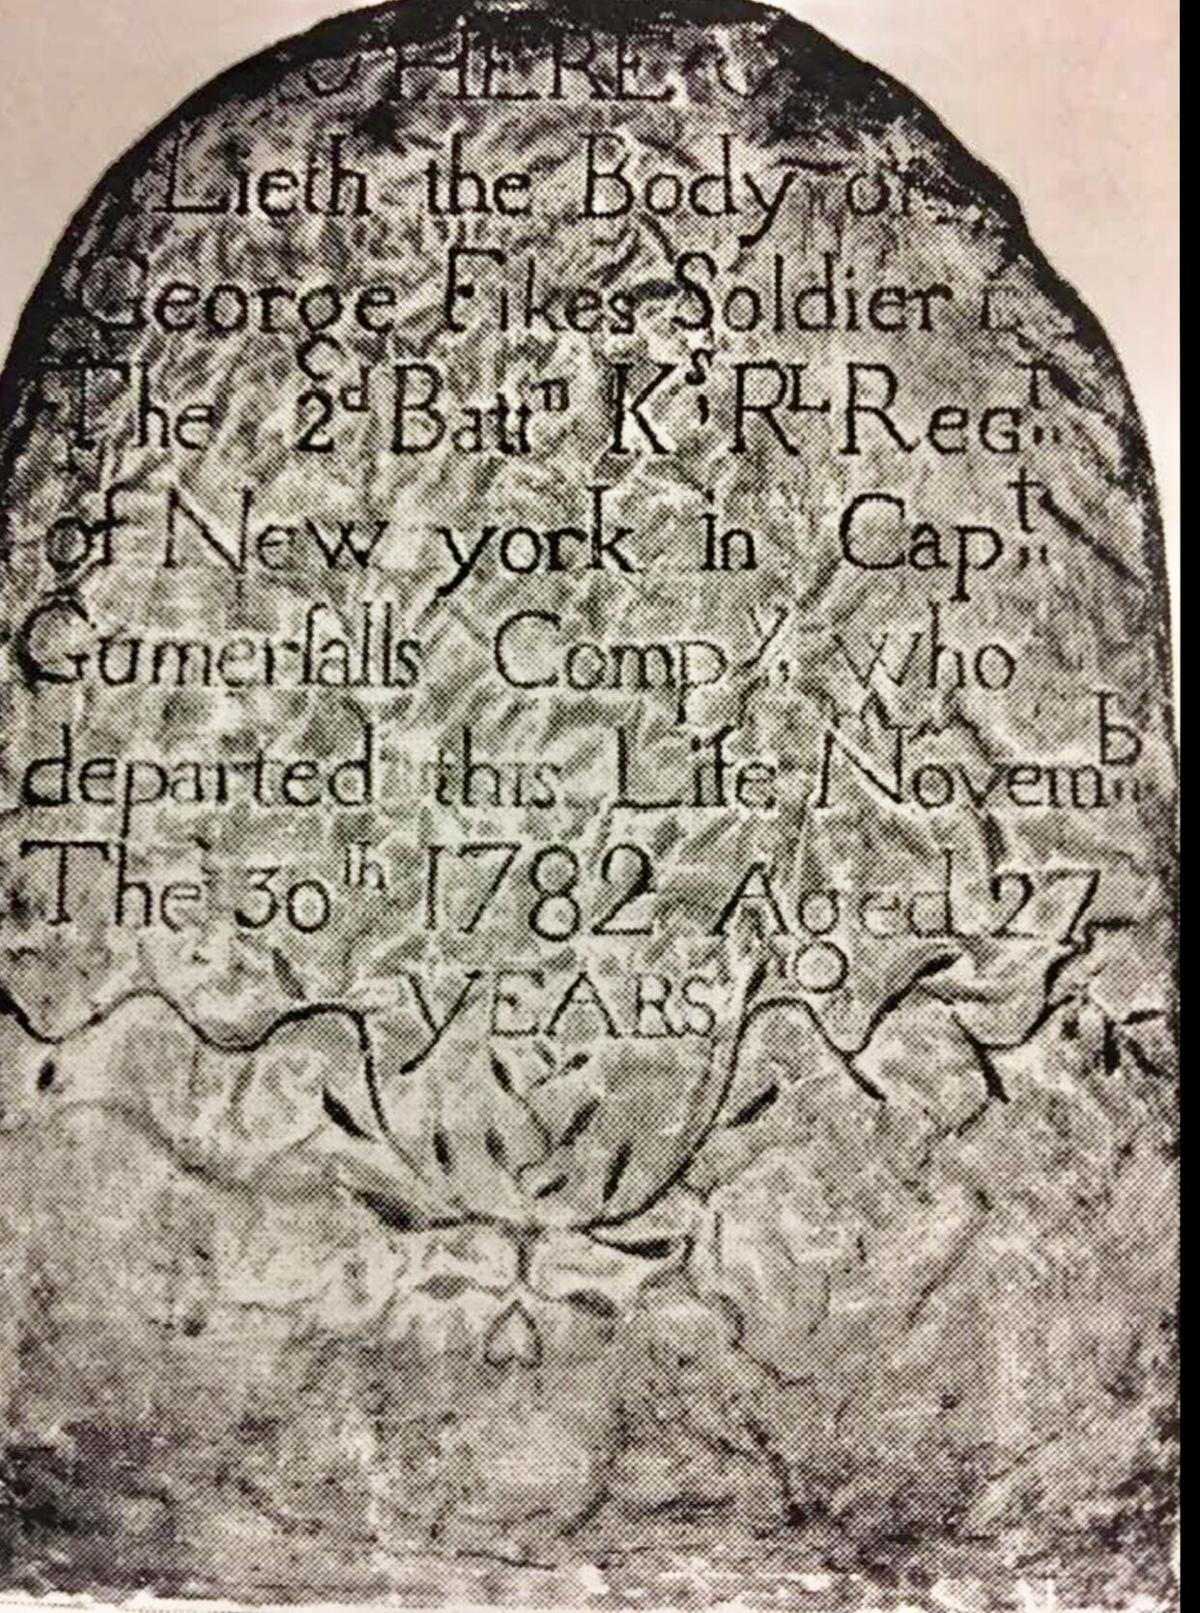 HERE
Lieth the Body of
George Fikes Soldier
The 2d Battn K's RL Regt
of New york in Capt
Gumerſalls Compy who
departed this Life Novemb
The 30th 1782 Aged 27
YEARS